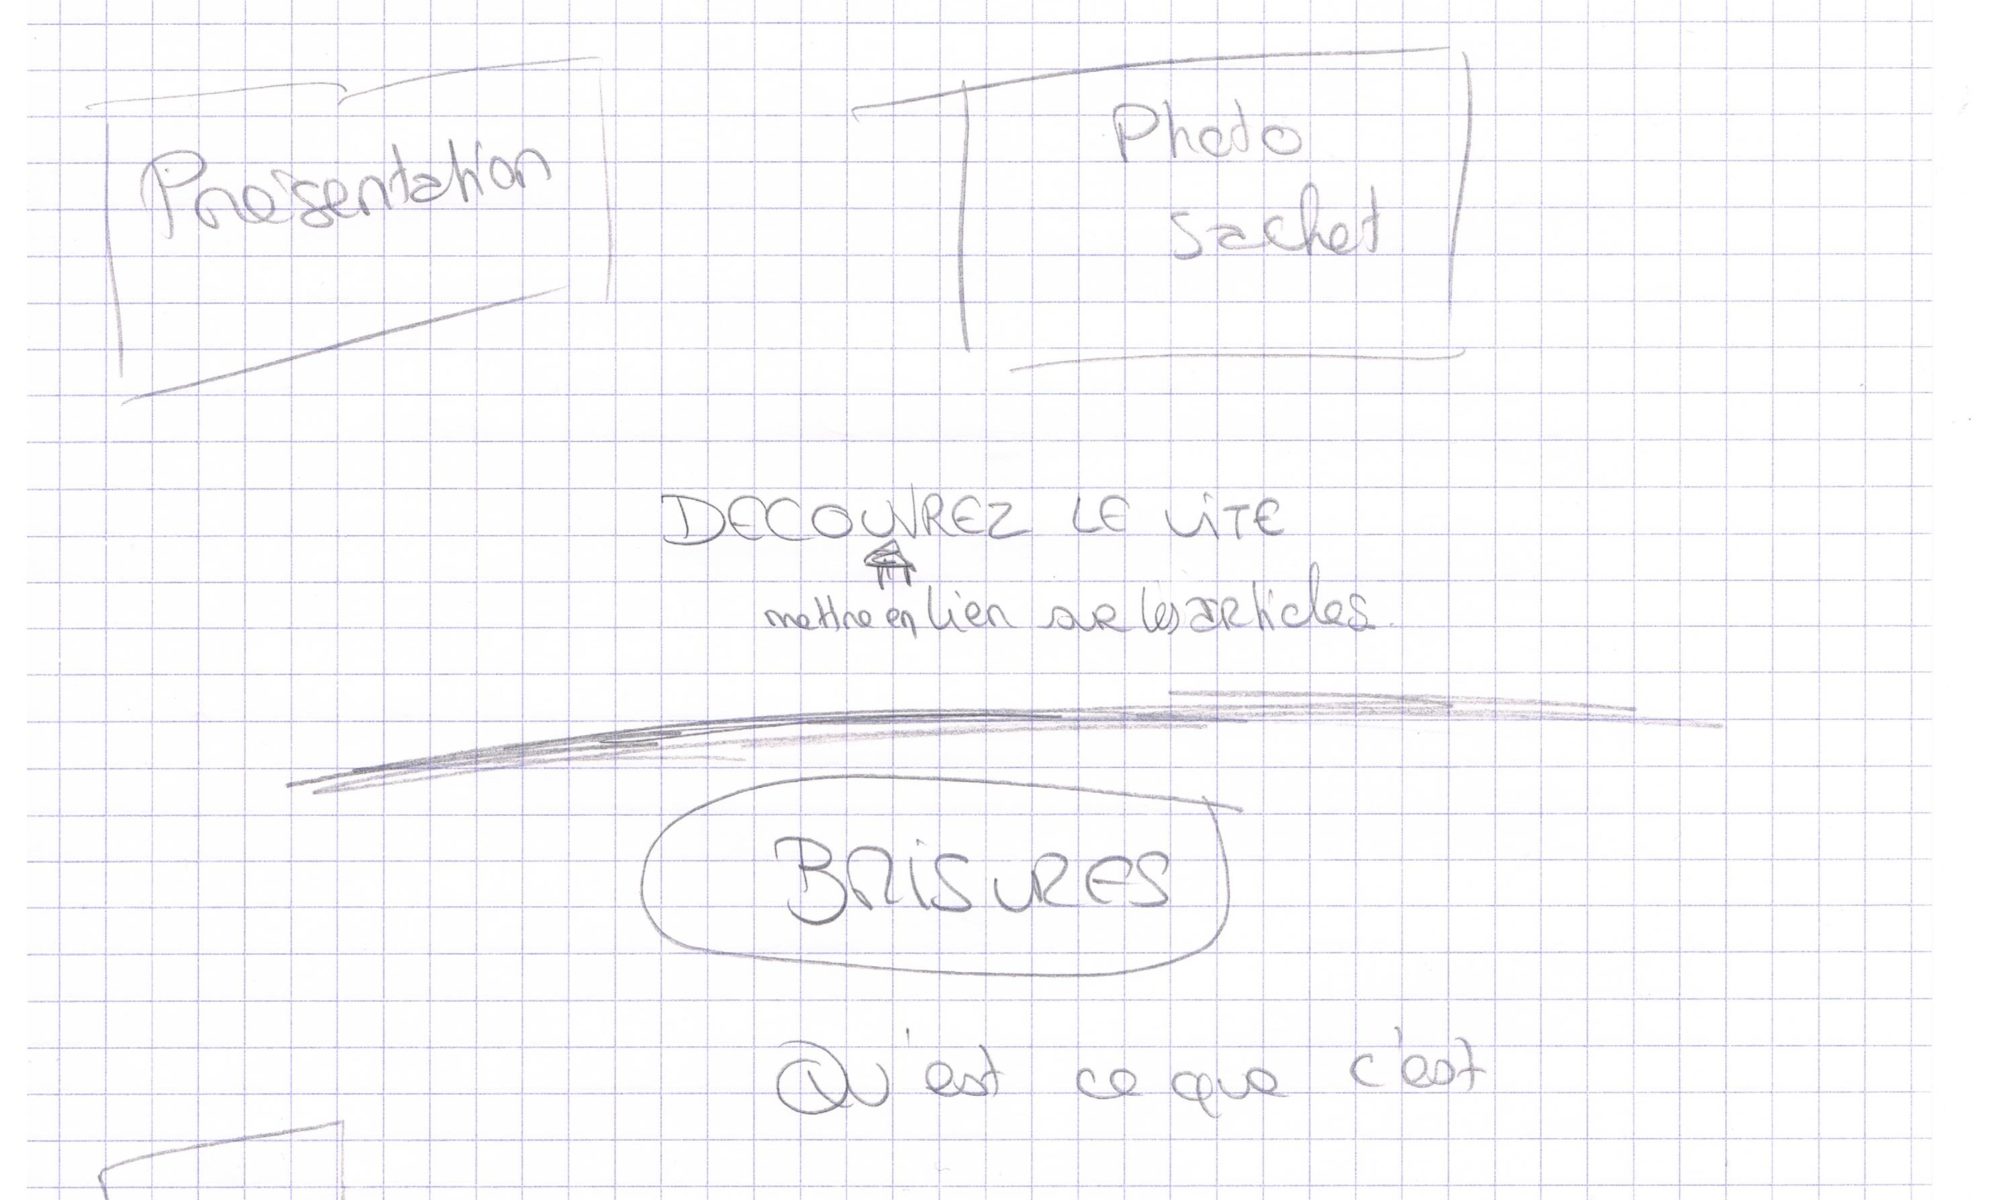 Présentation
Photo
sachet
DECOUVREZ LE VITE
mettre en lien sur les articles.
BRISURES
Qu'est ce que c'est